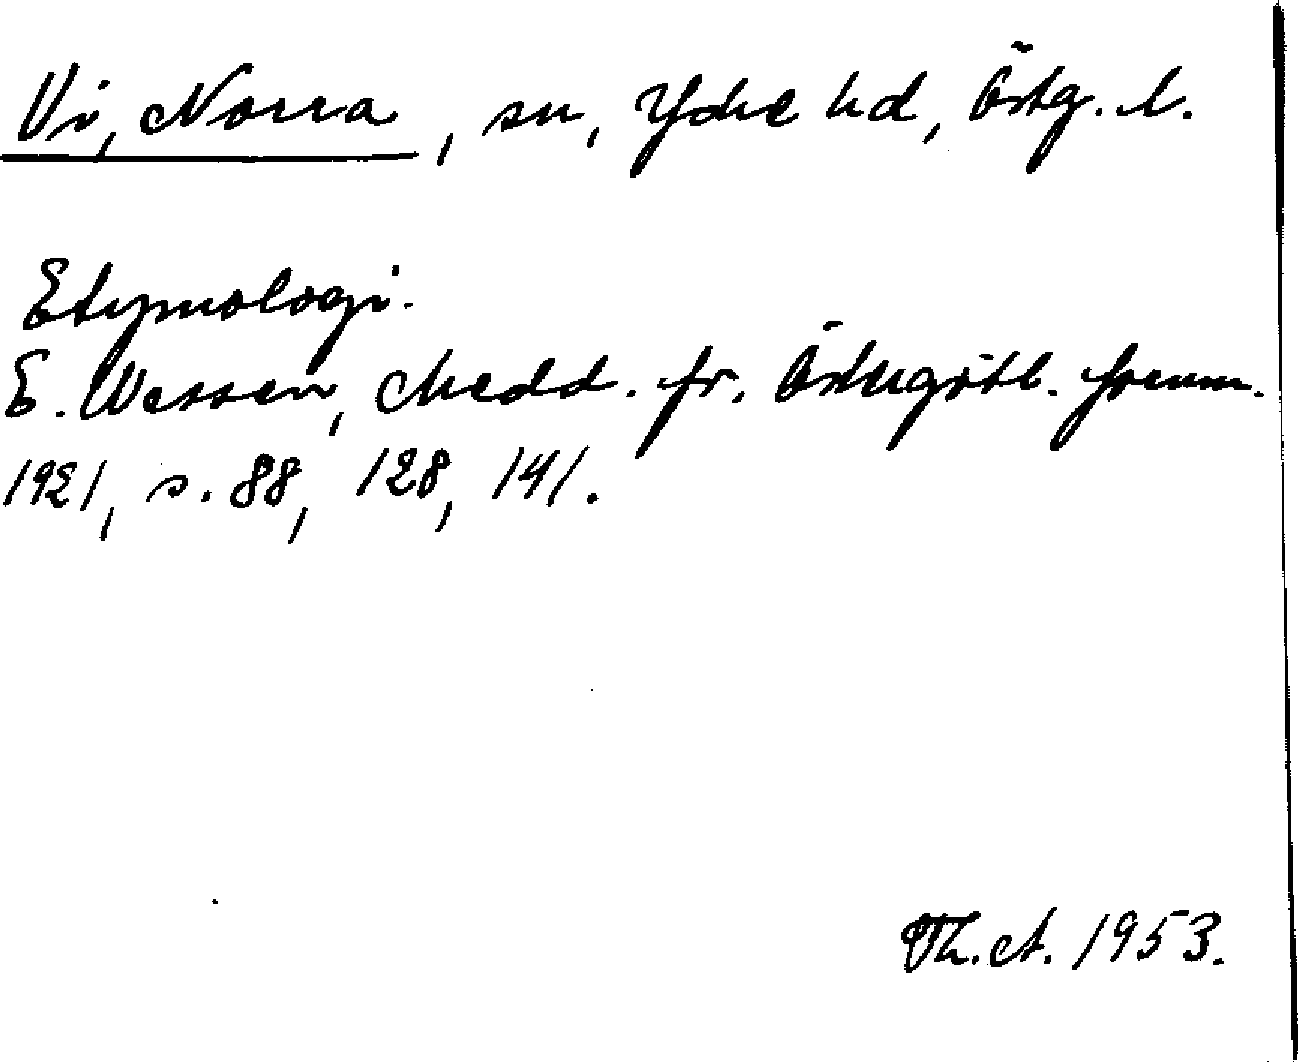 Vi, Norra, sn, Ydre hd, Östg. l.
Etymologi.
E. Wessen, Medd. fr. Östergötl. fornm.
1921, s. 88, 128, 141.
Th. A. 1953.